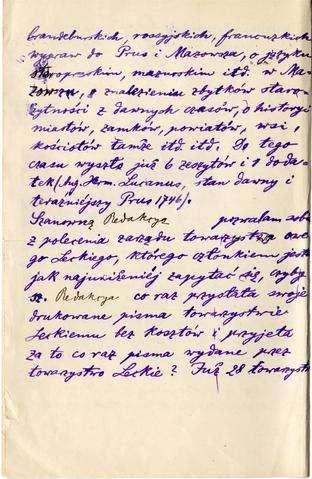 brandeburskich, rossyjskich, francuzkich
wypraw do Prus i Mazowsza, o języku
staropruskim, mazurskim itd. w Ma-
zowszu, o znalezieniu zbytków staro-
żytności z dawnych czasów, o historyi
miastów, zamków, powiatów, wsi,
kościołów tamże itd. itd. Do tego
czasu wyszło już 6 zeszytów i 1 doda-
tek (Aug. Herm. Lucanus, stan dawny i
teraźniejszy Prus 1748).
Szanowną Redakcyę pozwalam sobie
z polecenia zarządu towarzystwa
Leckiego, którego członkiem jestem
jak najuniżeniej zapytać się, czyby
sz. Redakcya co raz przysłała swoje
drukowane pisma towarzystwie
Leckiemu bez kosztów i przyjęła
za to co raz pisma wydane przez
towarzystwo Leckie? Już 28 towarzystw